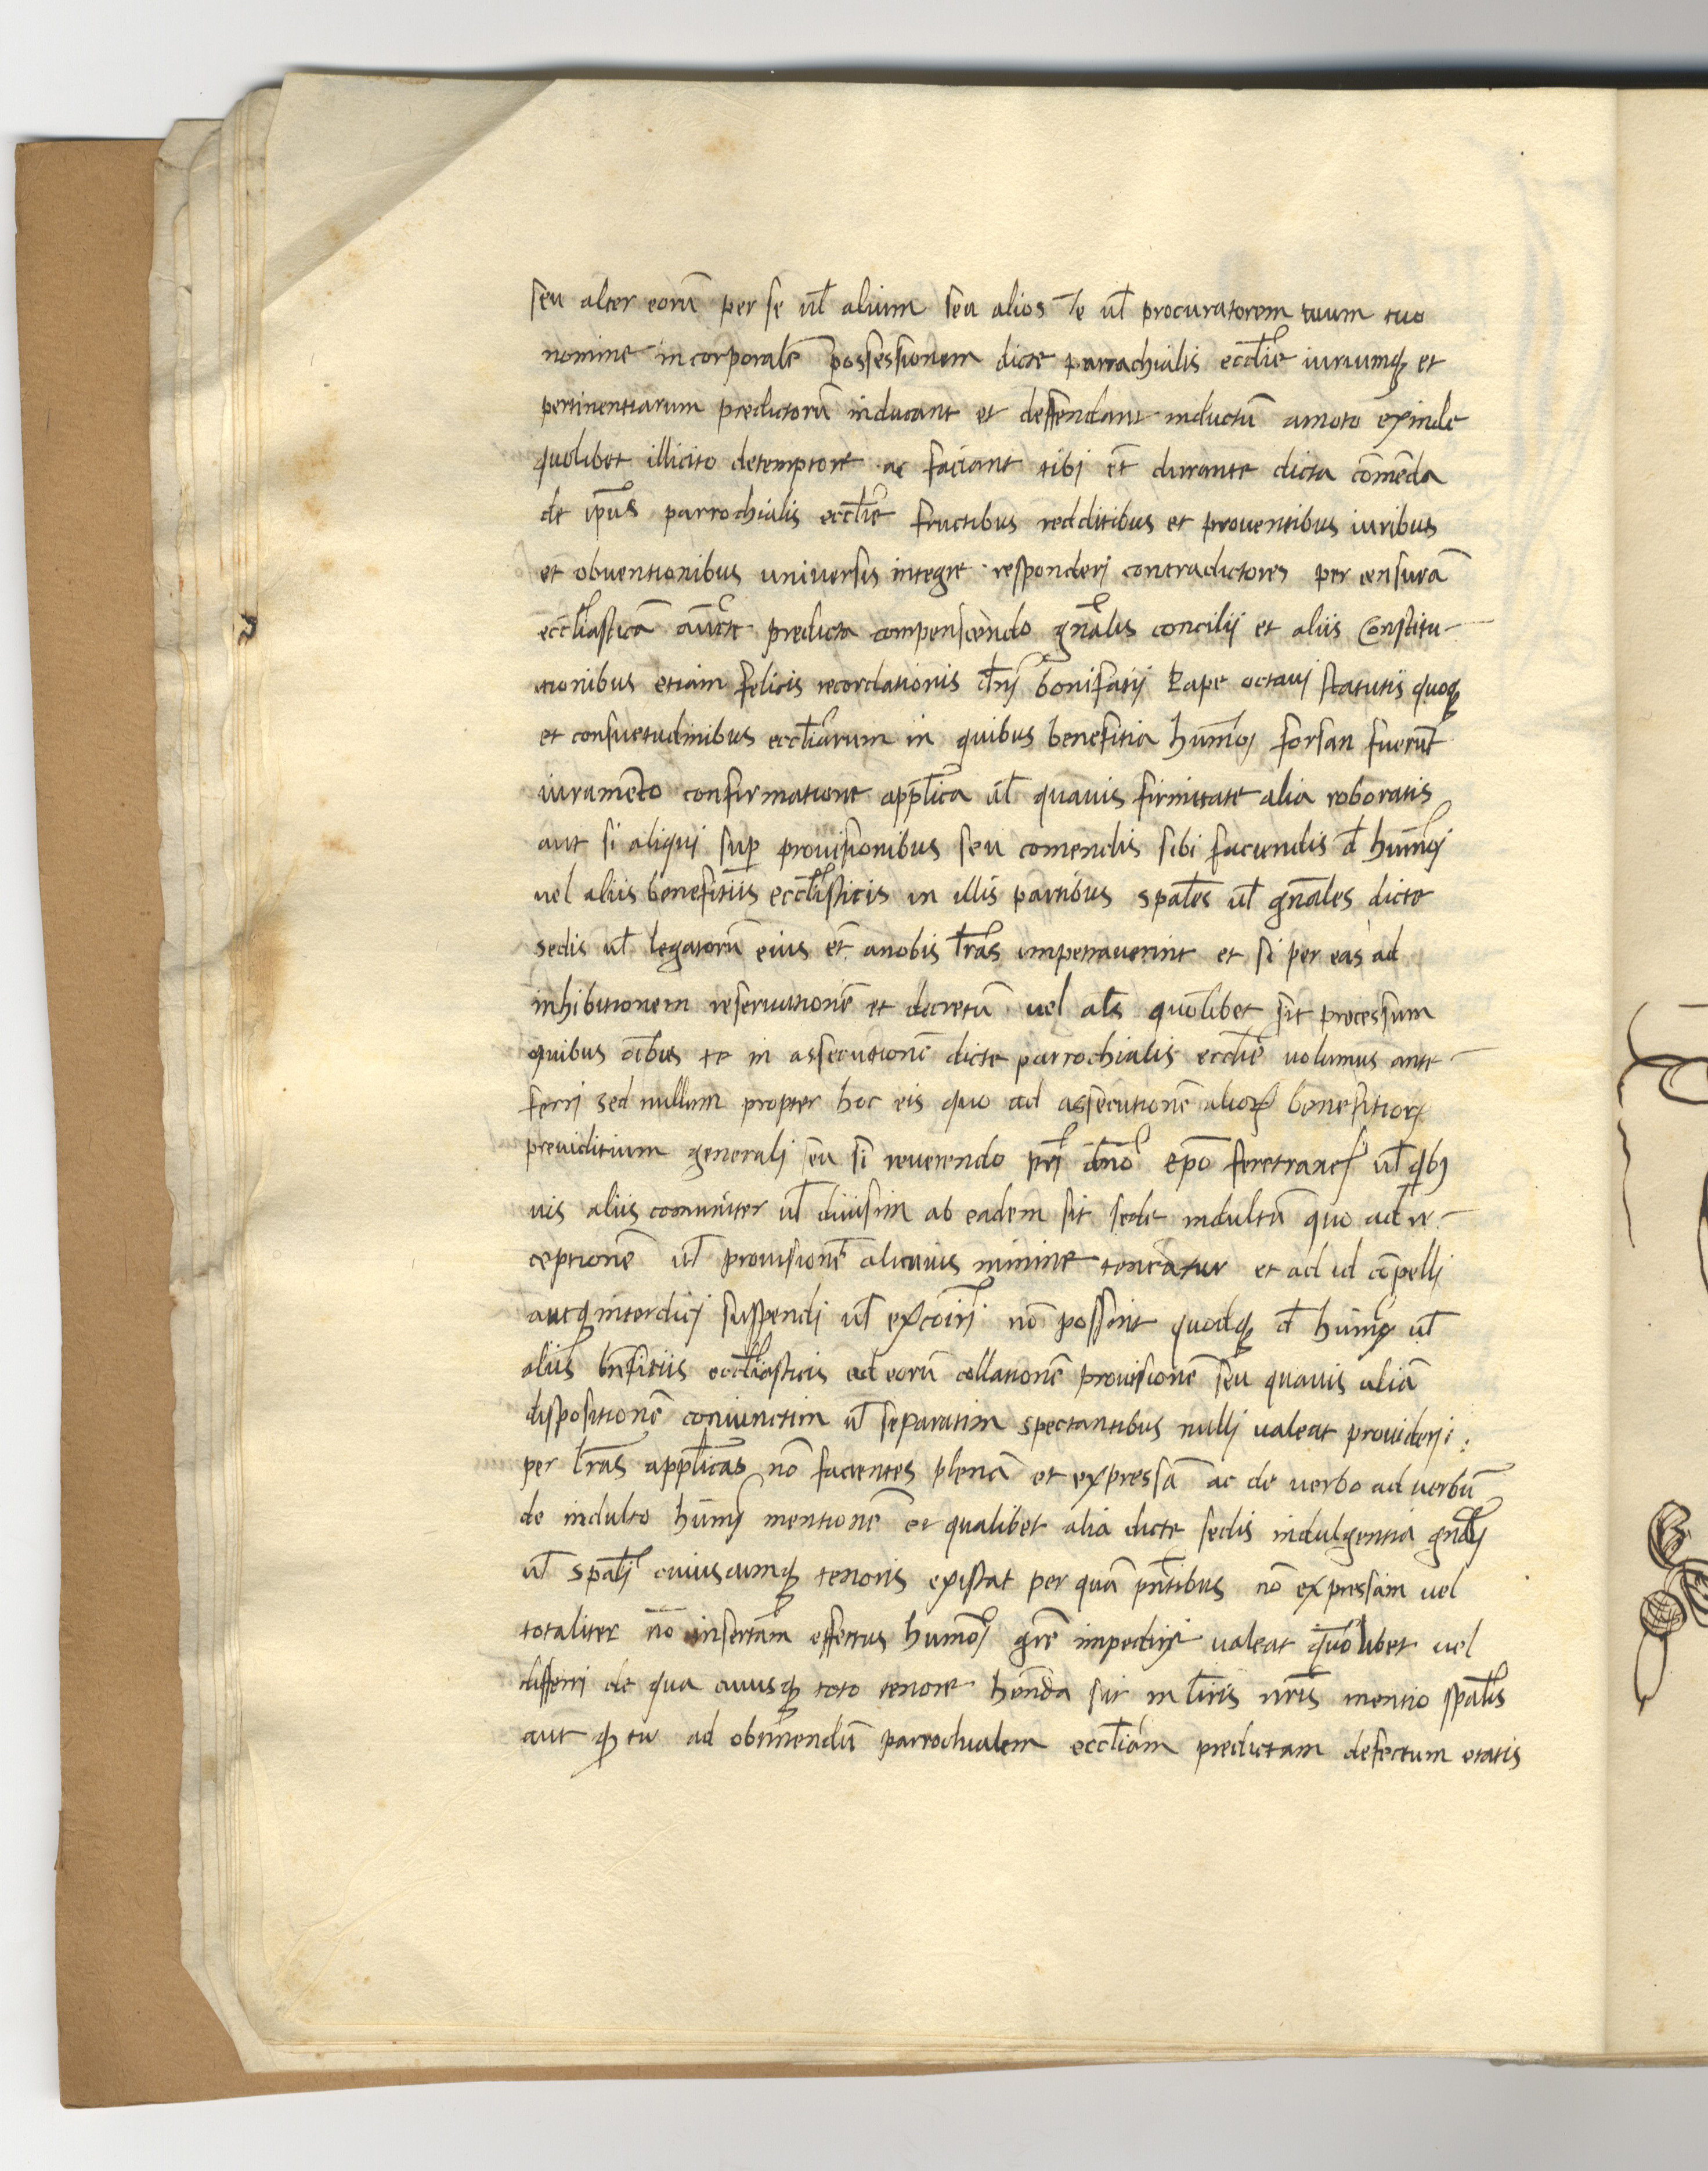 seu alter eorū per se ul̄ alium seu alios Te ul̄ procuratorem tuum tuo
nomine in corporalē possessionem dicte parrachialis eccl̄ie iuriumq; et
pertinentiarum predictorū inducant et deffendant inductū amoto exinde
quolibet illicito detemptore ac faciant tibi et̄ durante dicta comēda
de ip̄ius parrochialis eccl̄ie fructibus redditibus et prouentibus iuribus
et obuentionibus universis integre responderj contradictores per censurā
eccl̄iasticā auc̄te predicta compenscendo gn̄alis concilij et aliis Constitu-
tionibus etiam felicis recordationis dn̄j bonifatij Pape octauj statutis quoq;
et consuetudinibus eccl̄iarum in quibus benefitia hum̄oj forsan fuerūt
iuramento confirmatione appl̄ica ul̄ quauis firmitate alia roboratis
aut si aliquj sup̱ prouisionibus seu comendis sibi faciendis d̄ hum̄oj
uel aliis benefitiis eccl̄isticis in illis partibus spāles ul̄ gn̄ales dicte
sedis ul̄ legatorū eius et̄ anobis l̄ras impetrauerint et si per eas ad
inhibitionem reseruationē et decretū uel al̄s quolibet sit processum
quibus oībus te in assecutionē dicte parrochialis eccl̄ie uolumus ante-
ferrj sed nullum propter hoc eis quo ad assecutionē alioꝝ benefitioꝝ
preuiditium generalj seu si reuerendo pr̄j dn̄o ep̄o feretranes̄ ul̄ qb;
uis aliis comuniter ul̄ diuisim ab eadem sit sede indultū quo ad re-
ceptionē ul̄ prouisionē alicuius minime teneatur et ad id cōpellj
autq interdicj suspendi ul̄ excoīrj nō possint quodq; d̄ hum̄oj ul̄
aliis bn̄fitiis eccl̄iasticis ad eorū collationē prouisionē seu quauis aliā
dispositionē coniunctim ul̄ separatim spectantibus nullj ualeat prouiderj:
per l̄ras appl̄icas nō facientes plenā et expressā ac de uerbo ad uerbū
de indulto hum̄oj mentionē et qualibet alia dicte sedis indulgentia gn̄alj
ul̄ spāl̄j cuiuscumq; tenoris existat per quā pn̄tibus nō expressam uel
totaliter nō insertam effectus hum̄oj gr̄e impedirj ualeat quōlibet uel
differri de qua cuiusq; toto tenore hēnda sit in l̄ris nr̄is mentio spāl̄is
aut q; tu ad obtinendū parrochialem eccl̄iam predictam defectum etatis